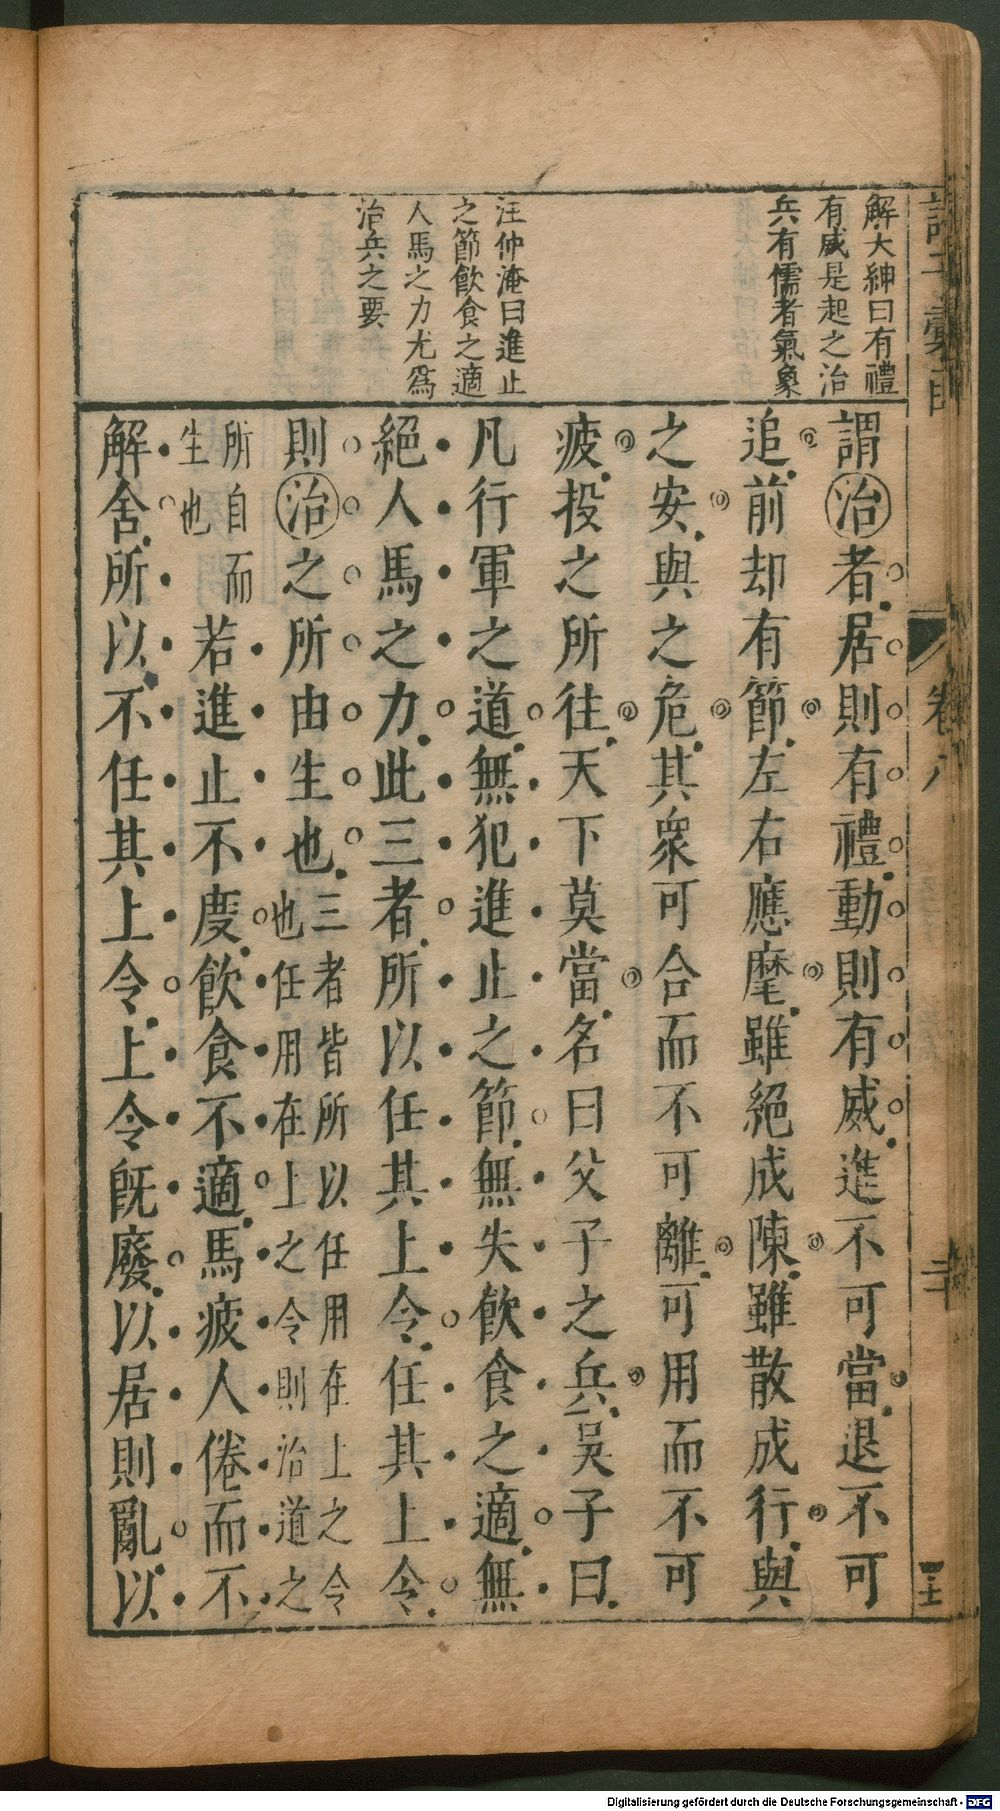 解大紳曰有禮
有威是起之治
兵有儒者氣象
汪仲淹曰進止
之節飲食之適
人馬之力尤爲
治兵之要
謂治者居則有禮動則有威進不可當退不可
追前却有節左右應麾雖絕成陳雖散成行與
之安與之危其衆可合而不可離可用而不可
疲投之所往天下莫當名曰父子之兵吳子曰
凡行軍之道無犯進止之節無失飲食之適無
絕人馬之力此三者所以任其上令任其上令
則治之所由生也三者皆所以任用在上之令也任用在上之令則治道之
所自而生也若進止不度飲食不適馬疲人倦而不
解舍所以不任其上令上令既廢以居則亂以
諸子彙函
卷八
二
Digitalisierung gefördert durch die Deutsche Forschungsgemeinschaft - DFG